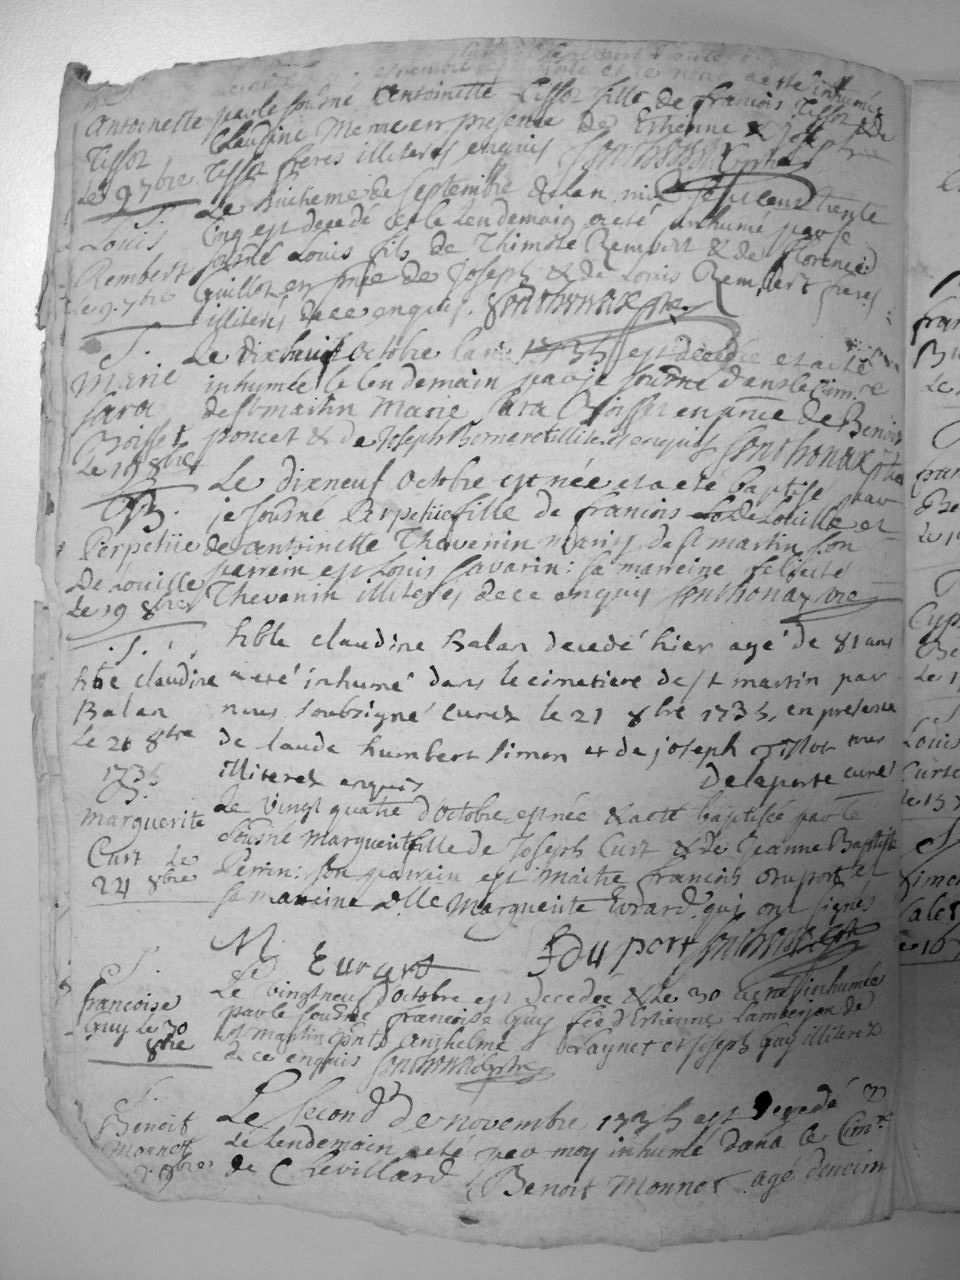 Antoinette
Tissot
Le 9 7bre
par le sousné Antoinette Tissot fille de francois Tissot & de
Claudine Meme en presence de Estienne & Joseph
Tissot freres illiteres enquis Sonthonax
Louis
Rembert
Le 9 7bre
Le huitieme de Septembre de lan mil sept cent trente
Cinq est decede et le lendemain a eté inhumé par je
sousné Louis fils de Thimote Rembert & de florence
Guillot en pnce de Joseph & de Louis Rembert freres
illiteres de ce enquis. Sonthonax
S.
Marie
Sara
Boisset
Le 19 8bre
Le dixhuit Octobre lan 1735 est decedée et a eté
inhumée le lendemain par je sousné dans le Cim.re
de st martin Marie Sara Boisset en pnce de Benoit
poncet & de Joseph Borneret illiteres enquis Sonthonax
B.
Perpetüe
De Louille
Le 19 8bre
Le dixneuf Octobre est née et a eté baptisé par
je sousné Perpetüe fille de francois De Louille et
de antoinette Thevenin mariés de st martin son
parrein est Louis Savarin: sa mareine felicité
Thevenin illiteres de ce enquis Sonthonax vic
.S.
hble claudine
Balan
Le 21 8bre
1735
hble claudine Balan decedé hier agé de 81 ans
a eté inhumé dans le cimetiere de st martin par
nous soubsigné curez le 21 8bre 1735, en presence
de laude humbert simon et de joseph Tissot tous
illiterez enquis Delaporte curé
B.
Marguerite
Curt Le
24 8bre
Le vingt quatre d'Octobre est née & a eté baptisée par le
sousné Marguerite fille de Joseph Curt & de Jeanne Baptiste
Perrin: son parrein est maitre francois Duport et
sa mareine dlle Marguerite Evrard qui ont signés
M. Evrard F Duport Sonthonax
S.
francoise
Guy Le 30
8bre
Le vingtneuf d'Octobre est decedée & Le 30 inhumée
par le sousné francoise Guy fee d'Estienne Lamberjon de
st martin pnts Anthelme Raynet et Joseph Guy illiterez
de ce enquis Sonthonax
Benoit
Monnot
9bre
Le Second De novembre 1735 est decedé &
Le lendemain a eté par moy inhumé dans le Cim.re
de Chevillard Benoit Monnot agé